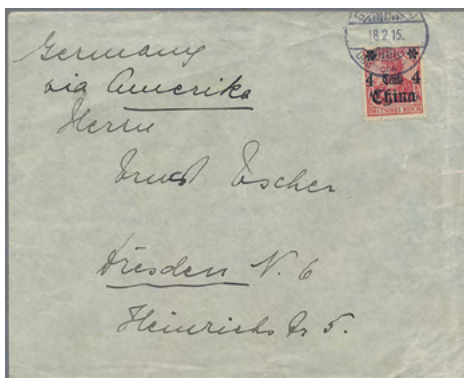 Germany
via Amerika
Herrn
Ernst Escher
Dresden N. 6
Heinrichstr 5.
18.2.15.
4 Cent 4
China
DEUTSCHES REICH